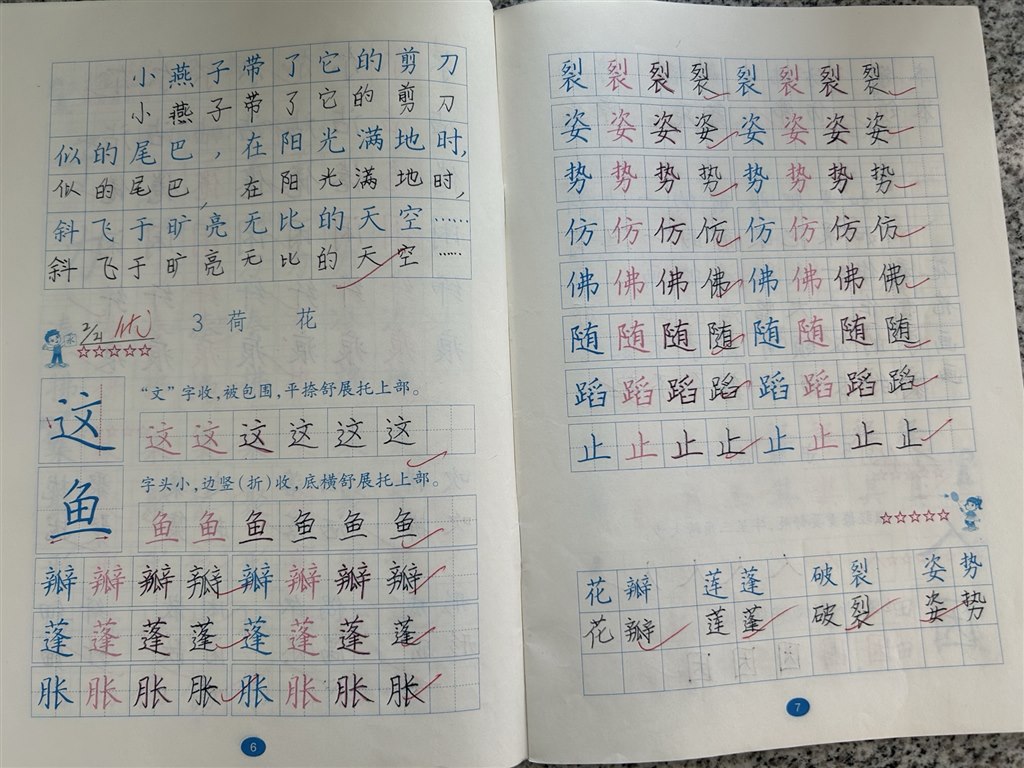 小燕子带了它的剪刀
小燕子带了它的剪刀
似的尾巴，在阳光满地时，
似的尾巴，在阳光满地时，
斜飞于旷亮无比的天空……
斜飞于旷亮无比的天空……
2/21 优
3 荷 花
☆☆☆☆☆
这
“文”字收，被包围，平捺舒展托上部。
这这这这这这
鱼
字头小，边竖（折）收，底横舒展托上部。
鱼鱼鱼鱼鱼鱼
瓣瓣瓣瓣瓣瓣瓣瓣
蓬蓬蓬蓬蓬蓬蓬蓬
胀胀胀胀胀胀胀胀
6
裂裂裂裂裂裂裂裂
姿姿姿姿姿姿姿姿
势势势势势势势势
仿仿仿仿仿仿仿仿
佛佛佛佛佛佛佛佛
随随随随随随随随
蹈蹈蹈蹈蹈蹈蹈蹈
止止止止止止止止
☆☆☆☆☆
花瓣 莲蓬 破裂 姿势
花瓣 莲蓬 破裂 姿势
7